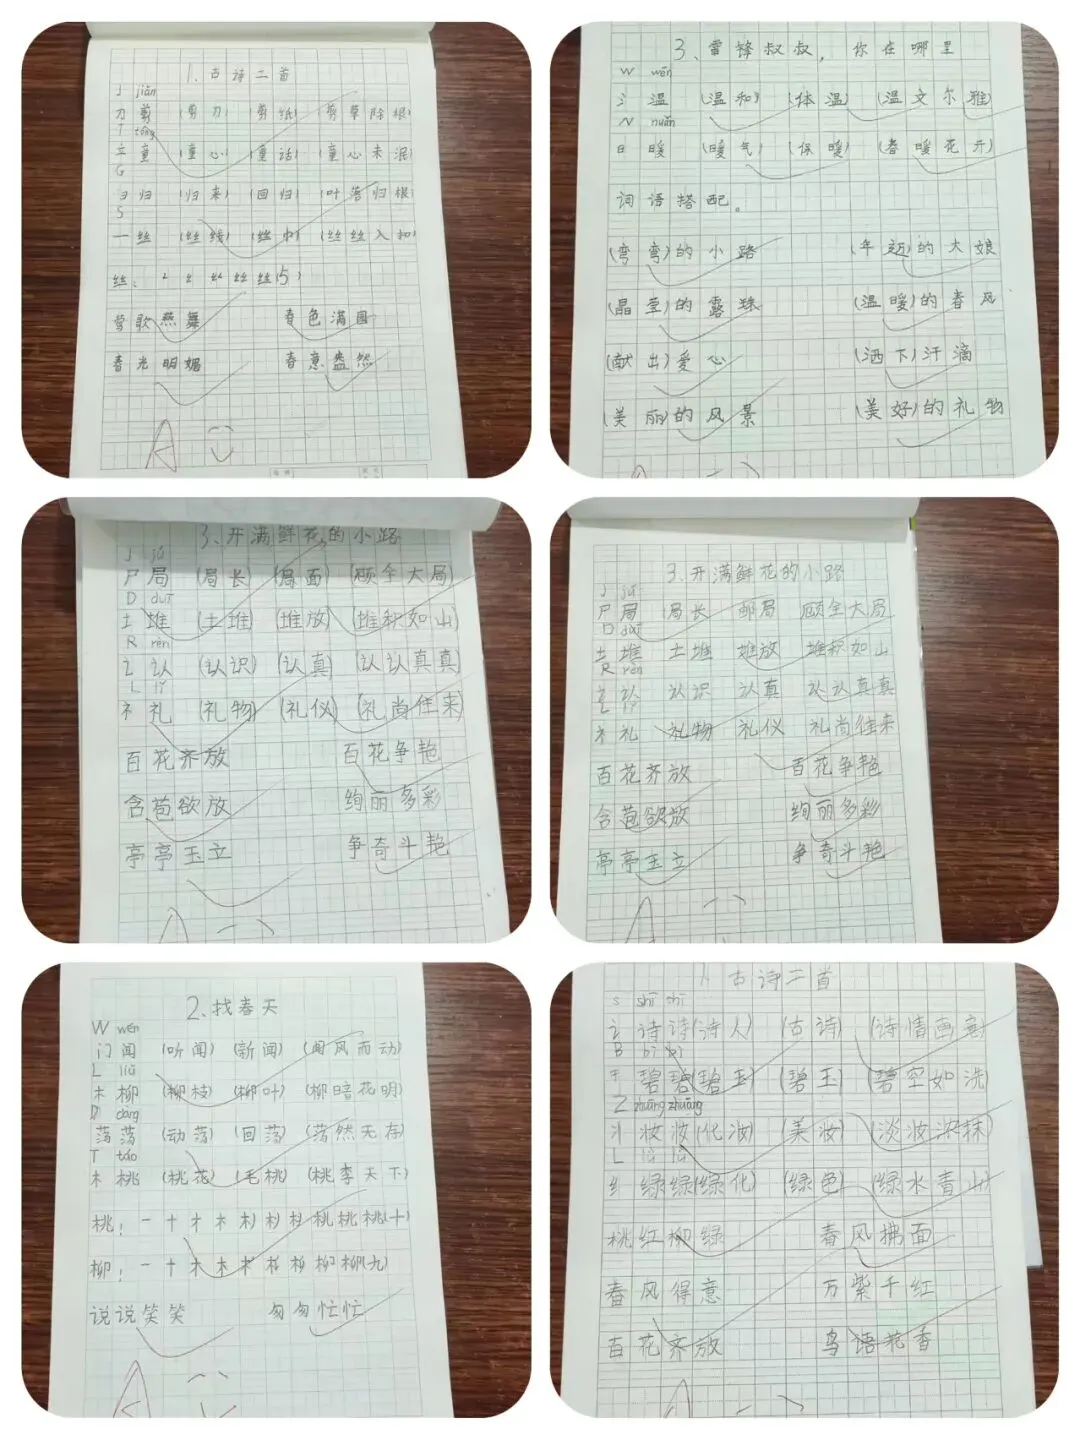 1、古诗二首
J jiǎn
刀 剪 (剪刀) (剪纸) (剪草除根)
T tóng
立 童 (童心) (童话) (童心未泯)
G
彐 归 (归来) (回归) (叶落归根)
S
一 丝 (丝线) (丝巾) (丝丝入扣)
丝、 (5)
莺歌燕舞 春色满园
春光明媚 春意盎然
A
3、雷锋叔叔，你在哪里
W wēn
氵 温 (温和) (体温) (温文尔雅)
N nuǎn
日 暖 (暖气) (保暖) (春暖花开)
词语搭配。
(弯弯)的小路 (年迈)的大娘
(晶莹)的露珠 (温暖)的春风
(献出)爱心 (洒下)汗滴
(美丽)的风景 (美好)的礼物
3、开满鲜花的小路
J jú
尸 局 (局长) (局面) (顾全大局)
D duī
土 堆 (土堆) (堆放) (堆积如山)
R rèn
讠 认 (认识) (认真) (认认真真)
L lǐ
礻 礼 (礼物) (礼仪) (礼尚往来)
百花齐放 百花争艳
含苞欲放 绚丽多彩
亭亭玉立 争奇斗艳
3.开满鲜花的小路
J jú
尸 局 局长 邮局 顾全大局
D duī
土 堆 土堆 堆放 堆积如山
R rèn
讠 认 认识 认真 认认真真
L lǐ
礻 礼 礼物 礼仪 礼尚往来
百花齐放 百花争艳
含苞欲放 绚丽多彩
亭亭玉立 争奇斗艳
2.找春天
W wén
门 闻 (听闻) (新闻) (闻风而动)
L liǔ
木 柳 (柳枝) (柳叶) (柳暗花明)
D dàng
荡荡 (动荡) (回荡) (荡然无存)
T táo
木 桃 (桃花) (毛桃) (桃李天下)
桃： 桃(十)
柳： 柳(九)
说说笑笑 匆匆忙忙
A
古诗二首
S shī shī
讠 诗诗(诗人) (古诗) (诗情画意)
B bì bì
王 碧碧(碧玉) (碧玉) (碧空如洗)
Z zhuāng zhuāng
丬 妆妆(化妆) (美妆) (淡妆浓抹)
L lǜ lǜ
纟 绿绿(绿化) (绿色) (绿水青山)
桃红柳绿 春风拂面
春风得意 万紫千红
百花齐放 鸟语花香